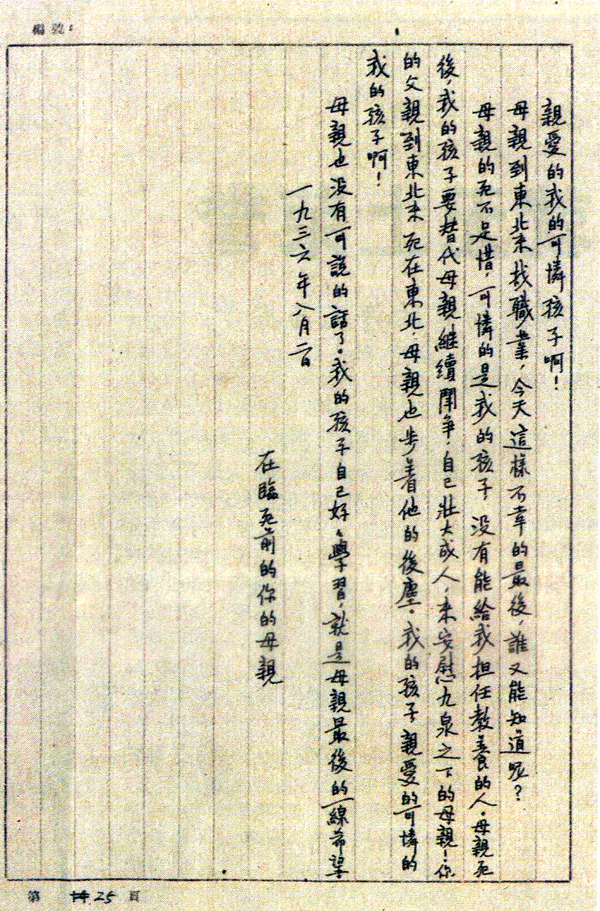 編號：
親愛的我的可憐孩子啊！
母親到東北來找職業，今天這樣不幸的最後，誰又能知道呢？
母親的死不足惜，可憐的是我的孩子，没有能給我担任教養的人。母親死
後，我的孩子要替代母親繼續鬥争，自己壯大成人，来安慰九泉之下的母親！你
的父親到東北来死在東北，母親也步着他的後塵。我的孩子，親愛的可憐的
我的孩子啊！
母親也没有可說的話了。我的孩子自己好々學習，就是母親最後的一線希望。
一九三六年八月二日
在臨死前的你的母親
第 25 頁